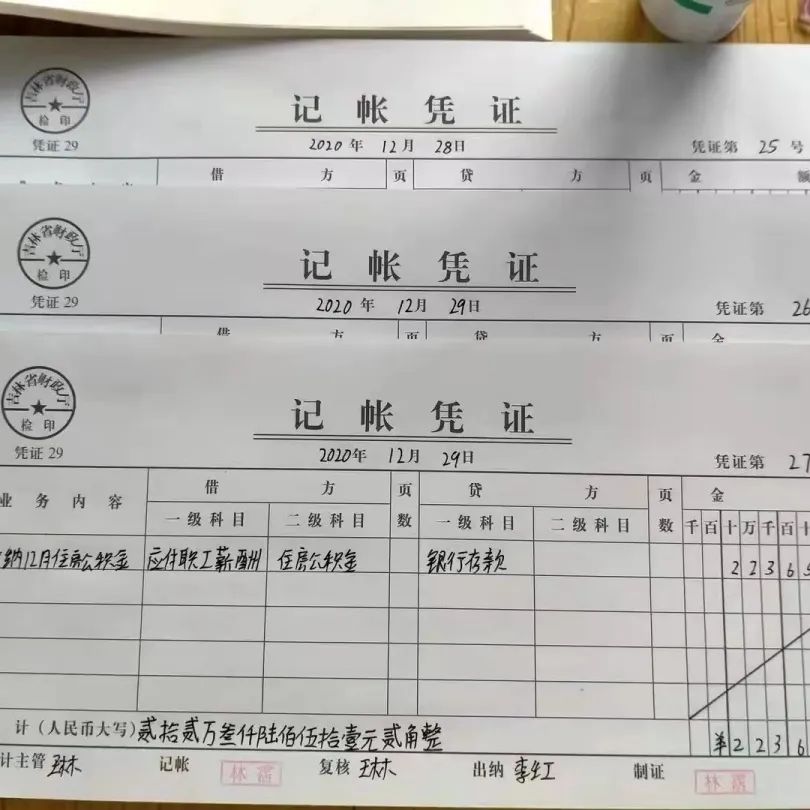 吉林省财政厅
检印
凭证 29
记帐凭证
2020年 12月 28日
凭证第 25 号
借方 页 贷方 页 金额
吉林省财政厅
检印
凭证 29
记帐凭证
2020年 12月 29日
凭证第 26
借方 页 贷方 页 金
吉林省财政厅
检印
凭证 29
记帐凭证
2020年 12月 29日
凭证第 27
业务内容 借方 页数 贷方 页数 金
一级科目 二级科目 一级科目 二级科目 千百十万千百十
纳12月住房公积金 应付职工薪酬 住房公积金 银行存款 22365
计(人民币大写)贰拾贰万叁仟陆佰伍拾壹元贰角整 ¥2236
计主管 王林 记帐 复核 王林 出纳 李红 制证